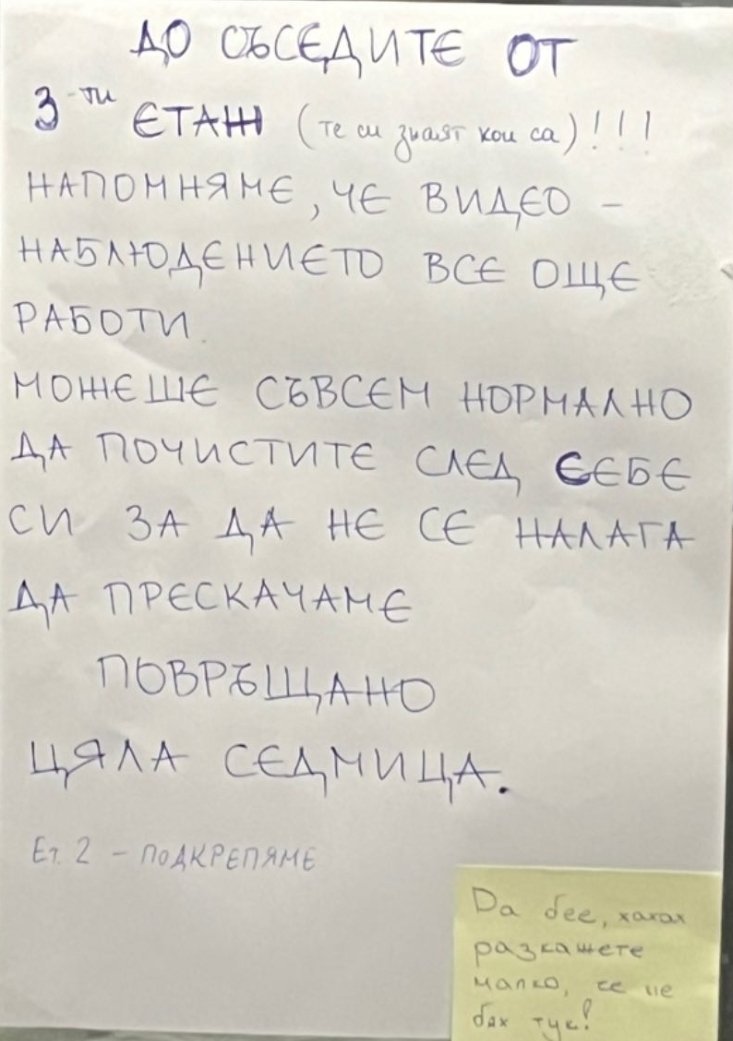 ДО СЪСЕДИТЕ ОТ
3-ти ЕТАЖ (те си знаят кои са)!!!
НАПОМНЯМЕ, ЧЕ ВИДЕО -
НАБЛЮДЕНИЕТО ВСЕ ОЩЕ
РАБОТИ
МОЖЕШЕ СЪВСЕМ НОРМАЛНО
ДА ПОЧИСТИТЕ СЛЕД СЕБЕ
СИ ЗА ДА НЕ СЕ НАЛАГА
ДА ПРЕСКАЧАМЕ
ПОВРЪЩАНО
ЦЯЛА СЕДМИЦА.
Ет. 2 - ПОДКРЕПЯМЕ
Da бее, хахах
разкажете
малко, че не
бях тук!